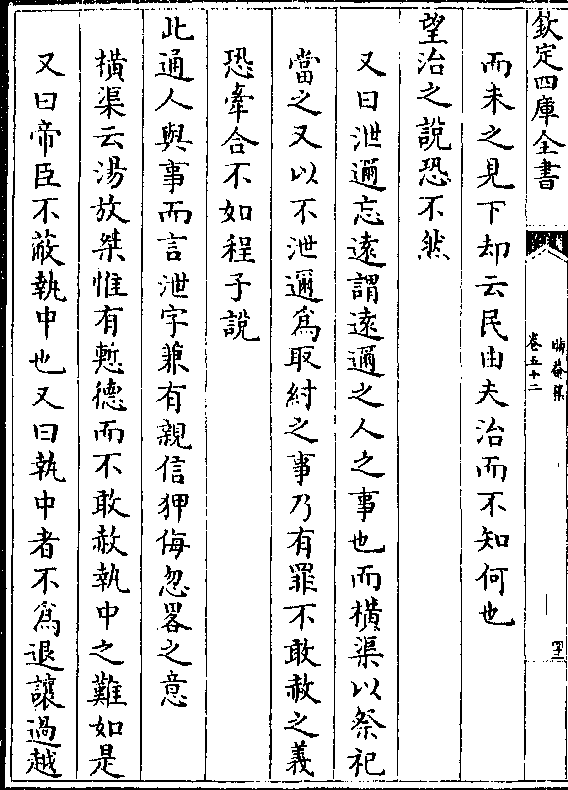 欽定四庫全書
晦菴集
卷五十二
而未之見下却云民由夫治而不知何也
望治之說恐不然
又曰泄邇忘逺謂逺邇之人之事也而橫渠以祭祀
當之又以不泄邇爲取紂之事乃有罪不敢赦之義
恐牽合不如程子說
此通人與事而言泄字兼有親信狎侮忽畧之意
橫渠云湯放桀惟有慙德而不敢赦執中之難如是
又曰帝臣不蔽執中也又曰執中者不爲退讓過越